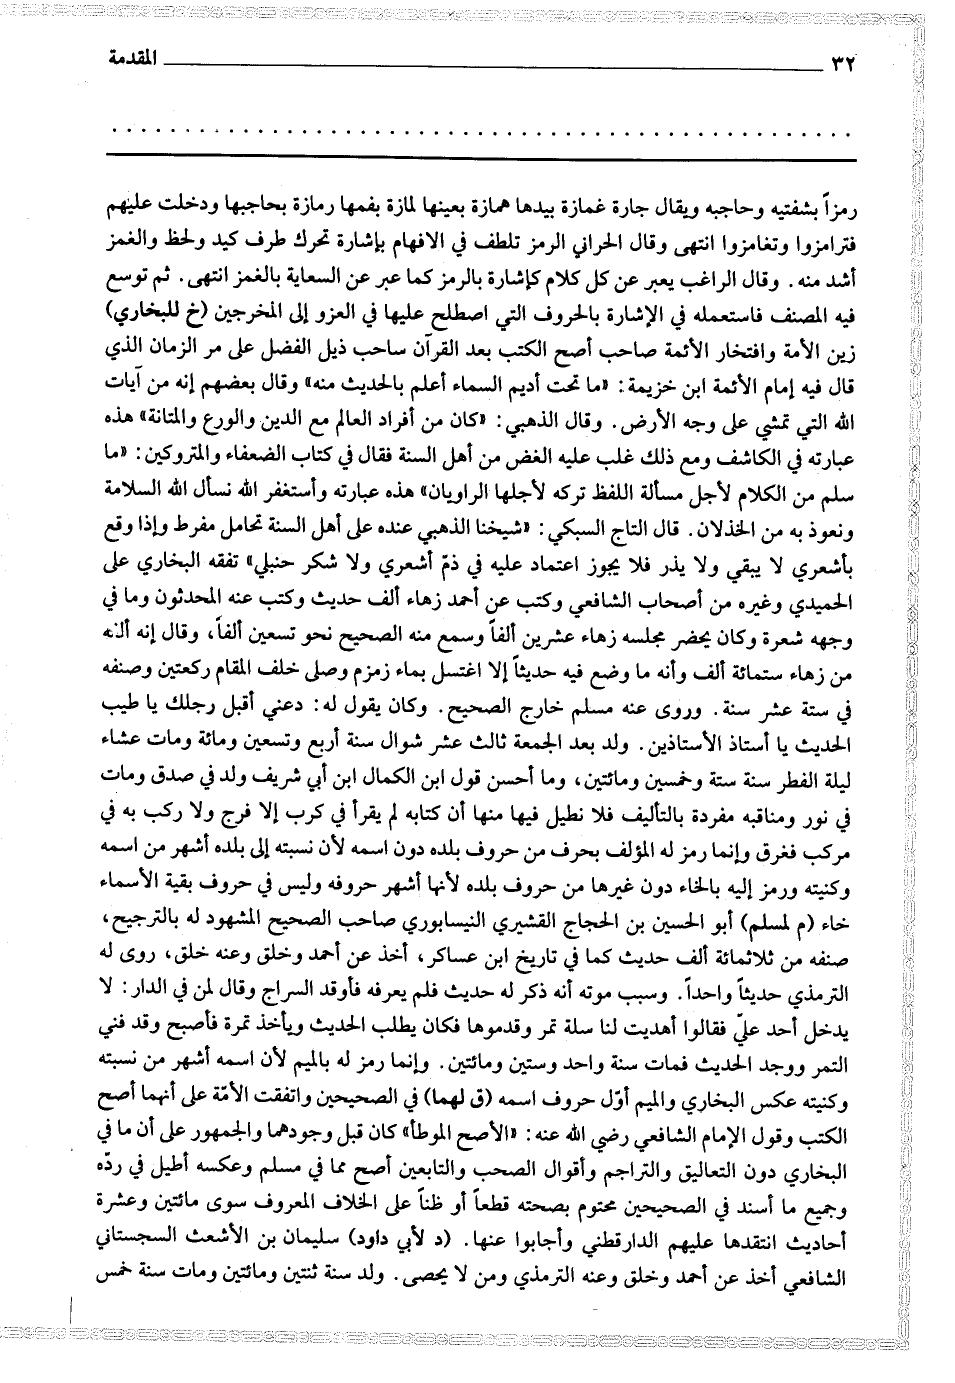 ٣٢ المقدمة
رمزاً بشفتيه وحاجبه ويقال جارة غمازة بيدها همازة بعينها لمازة بفمها رمازة بحاجبها ودخلت عليهم
فترامزوا وتغامزوا انتهى وقال الحراني الرمز تلطف في الافهام بإشارة تحرك طرف كيد ولحظ والغمز
أشد منه. وقال الراغب يعبر عن كل كلام كإشارة بالرمز كما عبر عن السعاية بالغمز انتهى. ثم توسع
فيه المصنف فاستعمله في الإشارة بالحروف التي اصطلح عليها في العزو إلى المخرجين (خ للبخاري)
زين الأمة وافتخار الأئمة صاحب أصح الكتب بعد القرآن ساحب ذيل الفضل على مر الزمان الذي
قال فيه إمام الأئمة ابن خزيمة: «ما تحت أديم السماء أعلم بالحديث منه» وقال بعضهم إنه من آيات
الله التي تمشي على وجه الأرض. وقال الذهبي: «كان من أفراد العالم مع الدين والورع والمتانة» هذه
عبارته في الكاشف ومع ذلك غلب عليه الغض من أهل السنة فقال في كتاب الضعفاء والمتروكين: «ما
سلم من الكلام لأجل مسألة اللفظ تركه لأجلها الراويان» هذه عبارته وأستغفر الله نسأل الله السلامة
ونعوذ به من الخذلان. قال التاج السبكي: «شيخنا الذهبي عنده على أهل السنة تحامل مفرط وإذا وقع
بأشعري لا يبقي ولا يذر فلا يجوز اعتماد عليه في ذمّ أشعري ولا شكر حنبلي» تفقه البخاري على
الحميدي وغيره من أصحاب الشافعي وكتب عن أحمد زهاء ألف حديث وكتب عنه المحدثون وما في
وجهه شعرة وكان يحضر مجلسه زهاء عشرين ألفاً وسمع منه الصحيح نحو تسعين ألفاً، وقال إنه ألفه
من زهاء ستمائة ألف وأنه ما وضع فيه حديثاً إلا اغتسل بماء زمزم وصلى خلف المقام ركعتين وصنفه
في ستة عشر سنة. وروى عنه مسلم خارج الصحيح. وكان يقول له: دعني أقبل رجلك يا طيب
الحديث يا أستاذ الأستاذين. ولد بعد الجمعة ثالث عشر شوال سنة أربع وتسعين ومائة ومات عشاء
ليلة الفطر سنة ستة وخمسين ومائتين، وما أحسن قول ابن الكمال ابن أبي شريف ولد في صدق ومات
في نور ومناقبه مفردة بالتأليف فلا نطيل فيها منها أن كتابه لم يقرأ في كرب إلا فرج ولا ركب به في
مركب فغرق وإنما رمز له المؤلف بحرف من حروف بلده دون اسمه لأن نسبته إلى بلده أشهر من اسمه
وكنيته ورمز إليه بالخاء دون غيرها من حروف بلده لأنها أشهر حروفه وليس في حروف بقية الأسماء
خاء (م لمسلم) أبو الحسين بن الحجاج القشيري النيسابوري صاحب الصحيح المشهود له بالترجيح،
صنفه من ثلاثمائة ألف حديث كما في تاريخ ابن عساكر، أخذ عن أحمد وخلق وعنه خلق، روى له
الترمذي حديثاً واحداً. وسبب موته أنه ذكر له حديث فلم يعرفه فأوقد السراج وقال لمن في الدار: لا
يدخل أحد عليّ فقالوا أهديت لنا سلة تمر وقدموها فكان يطلب الحديث ويأخذ تمرة فأصبح وقد فني
التمر ووجد الحديث فمات سنة واحد وستين ومائتين. وإنما رمز له بالميم لأن اسمه أشهر من نسبته
وكنيته عكس البخاري والميم أوّل حروف اسمه (ق لهما) في الصحيحين واتفقت الأمّة على أنهما أصح
الكتب وقول الإمام الشافعي رضي الله عنه: «الأصح الموطأ» كان قبل وجودهما والجمهور على أن ما في
البخاري دون التعاليق والتراجم وأقوال الصحب والتابعين أصح مما في مسلم وعكسه أطيل في ردّه
وجميع ما أسند في الصحيحين محتوم بصحته قطعاً أو ظناً على الخلاف المعروف سوى مائتين وعشرة
أحاديث انتقدها عليهم الدارقطني وأجابوا عنها. (د لأبي داود) سليمان بن الأشعث السجستاني
الشافعي أخذ عن أحمد وخلق وعنه الترمذي ومن لا يحصى. ولد سنة ثنتين ومائتين ومات سنة خمس